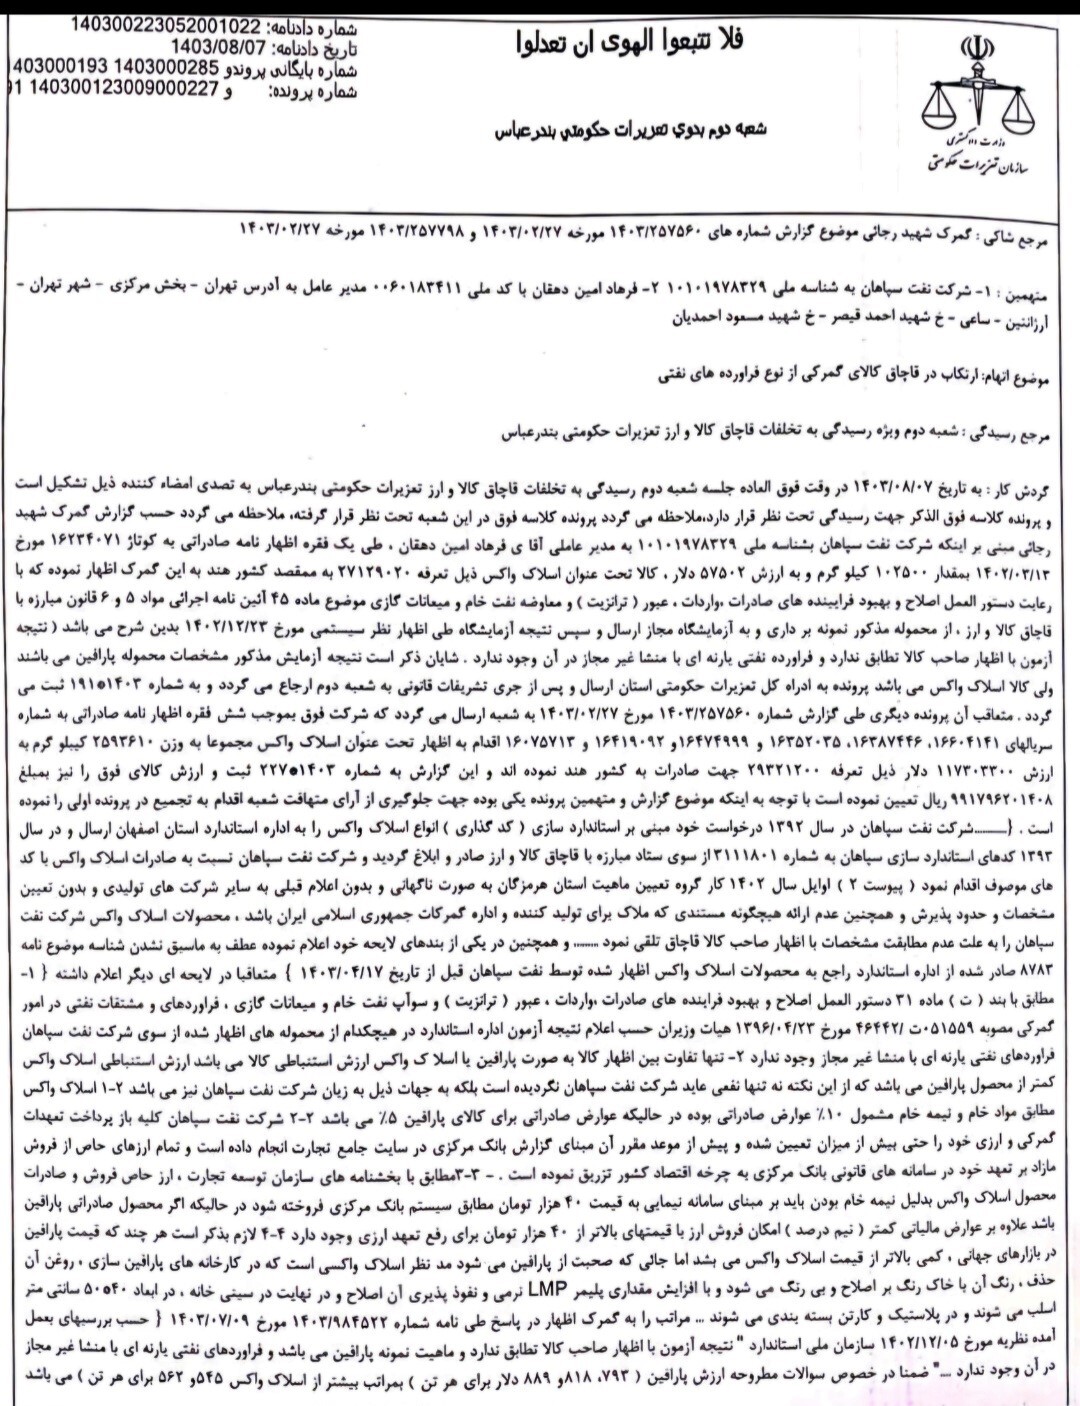 شماره دادنامه: 140300223052001022
تاریخ دادنامه: 1403/08/07
شماره بایگانی پروندو 1403000285 403000193
شماره پرونده: و 140300123009000227 91
فلا تتبعوا الهوی ان تعدلوا
شعبه دوم بدوي تعزیرات حکومتي بندرعباس
وزارت دادگستری
سازمان تعزیرات حکومتی
مرجع شاکی : گمرک شهید رجائی موضوع گزارش شماره های ۱۴۰۳/۲۵۷۵۶۰ مورخه ۱۴۰۳/۰۲/۲۷ و ۱۴۰۳/۲۵۷۷۹۸ مورخه ۱۴۰۳/۰۲/۲۷
متهمین : ۱- شرکت نفت سپاهان به شناسه ملی ۱۰۱۰۱۹۷۸۳۲۹ ۲- فرهاد امین دهقان با کد ملی ۰۰۶۰۱۸۳۴۱۱ مدیر عامل به آدرس تهران - بخش مرکزی - شهر تهران -
آرژانتین - ساعی - خ شهید احمد قیصر - خ شهید مسعود احمدیان
موضوع اتهام: ارتکاب در قاچاق کالای گمرکی از نوع فراورده های نفتی
مرجع رسیدگی : شعبه دوم ویژه رسیدگی به تخلفات قاچاق کالا و ارز تعزیرات حکومتی بندرعباس
گردش کار : به تاریخ ۱۴۰۳/۰۸/۰۷ در وقت فوق العاده جلسه شعبه دوم رسیدگی به تخلفات قاچاق کالا و ارز تعزیرات حکومتی بندرعباس به تصدی امضاء کننده ذیل تشکیل است
و پرونده کلاسه فوق الذکر جهت رسیدگی تحت نظر قرار دارد،ملاحظه می گردد پرونده کلاسه فوق در این شعبه تحت نظر قرار گرفته، ملاحظه می گردد حسب گزارش گمرک شهید
رجائی مبنی بر اینکه شرکت نفت سپاهان بشناسه ملی ۱۰۱۰۱۹۷۸۳۲۹ به مدیر عاملی آقا ی فرهاد امین دهقان ، طی یک فقره اظهار نامه صادراتی به کوتاژ ۱۶۲۳۴۰۷۱ مورخ
۱۴۰۲/۰۳/۱۳ بمقدار ۱۰۲۵۰۰ کیلو گرم و به ارزش ۵۷۵۰۲ دلار ، کالا تحت عنوان اسلاک واکس ذیل تعرفه ۲۷۱۲۹۰۲۰ به ممقصد کشور هند به این گمرک اظهار نموده که با
رعایت دستور العمل اصلاح و بهبود فرایینده های صادرات ،واردات ، عبور ( ترانزیت ) و معاوضه نفت خام و میعانات گازی موضوع ماده ۴۵ آئین نامه اجرائی مواد ۵ و ۶ قانون مبارزه با
قاچاق کالا و ارز ، از محموله مذکور نمونه بر داری و به آزمایشگاه مجاز ارسال و سپس نتیجه آزمایشگاه طی اظهار نظر سیستمی مورخ ۱۴۰۲/۱۲/۲۳ بدین شرح می باشد ( نتیجه
آزمون با اظهار صاحب کالا تطابق ندارد و فراورده نفتی یارنه ای با منشا غیر مجاز در آن وجود ندارد . شایان ذکر است نتیجه آزمایش مذکور مشخصات محموله پارافین می باشند
ولی کالا اسلاک واکس می باشد پرونده به ادراه کل تعزیرات حکومتی استان ارسال و پس از جری تشریفات قانونی به شعبه دوم ارجاع می گردد و به شماره ۱۴۰۳•۱۹۱ ثبت می
گردد . متعاقب آن پرونده دیگری طی گزارش شماره ۱۴۰۳/۲۵۷۵۶۰ مورخ ۱۴۰۳/۰۲/۲۷ به شعبه ارسال می گردد که شرکت فوق بموجب شش فقره اظهار نامه صادراتی به شماره
سریالهای ۱۶۶۰۴۱۴۱، ۱۶۳۸۷۴۴۶، ۱۶۳۵۲۰۳۵ و ۱۶۴۷۴۹۹۹و ۱۶۴۱۹۰۹۲ و ۱۶۰۷۵۷۱۳ اقدام به اظهار تحت عنوان اسلاک واکس مجموعا به وزن ۲۵۹۳۶۱۰ کیبلو گرم به
ارزش ۱۱۷۳۰۳۳۰۰ دلار ذیل تعرفه ۲۹۳۲۱۲۰۰ جهت صادرات به کشور هند نموده اند و این گزارش به شماره ۱۴۰۳•۲۲۷ ثبت و ارزش کالای فوق را نیز بمبلغ
۹۹۱۷۹۶۲۰۱۴۰۸ ریال تعیین نموده است با توجه به اینکه موضوع گزارش و متهمین پرونده یکی بوده جهت جلوگیری از آرای متهافت شعبه اقدام به تجمیع در پرونده اولی را نموده
است . {........شرکت نفت سپاهان در سال ۱۳۹۲ درخواست خود مبنی بر استاندارد سازی ( کد گذاری ) انواع اسلاک واکس را به اداره استاندارد استان اصفهان ارسال و در سال
۱۳۹۳ کدهای استاندارد سازی سپاهان به شماره ۳۱۱۱۸۰۱از سوی ستاد مبارزه با قاچاق کالا و ارز صادر و ابلاغ گردید و شرکت نفت سپاهان نسبت به صادرات اسلاک واکس با کد
های موصوف اقدام نمود ( پیوست ۲ ) اوایل سال ۱۴۰۲ کار گروه تعیین ماهیت استان هرمزگان به صورت ناگهانی و بدون اعلام قبلی به سایر شرکت های تولیدی و بدون تعیین
مشخصات و حدود پذیرش و همچنین عدم ارائه هیچگونه مستندی که ملاک برای تولید کننده و اداره گمرکات جمهوری اسلامی ایران باشد ، محصولات اسلاک واکس شرکت نفت
سپاهان را به علت عدم مطابقت مشخصات با اظهار صاحب کالا قاچاق تلقی نمود ........ و همچنین در یکی از بندهای لایحه خود اعلام نموده عطف به ماسبق نشدن شناسه موضوع نامه
۸۷۸۳ صادر شده از اداره استاندارد راجع به محصولات اسلاک واکس اظهار شده توسط نفت سپاهان قبل از تاریخ ۱۴۰۳/۰۴/۱۷ } متعاقبا در لایحه ای دیگر اعلام داشته { ۱-
مطابق با بند ( ت ) ماده ۳۱ دستور العمل اصلاح و بهبود فراینده های صادرات ،واردات ، عبور ( ترانزیت ) و سوآپ نفت خام و میعانات گازی ، فراوردهای و مشتقات نفتی در امور
گمرکی مصوبه ۰۵۱۵۵۹ت /۴۶۴۴۲ مورخ ۱۳۹۶/۰۴/۲۳ هیات وزیران حسب اعلام نتیجه آزمون اداره استاندارد در هیچکدام از محموله های اظهار شده از سوی شرکت نفت سپاهان
فراوردهای نفتی یارنه ای با منشا غیر مجاز وجود ندارد ۲- تنها تفاوت بین اظهار کالا به صورت پارافین یا اسلا ک واکس ارزش استنباطی کالا می باشد ارزش استنباطی اسلاک واکس
کمتر از محصول پارافین می باشد که از این نکته نه تنها نفعی عاید شرکت نفت سپاهان نگردیده است بلکه به جهات ذیل به زیان شرکت نفت سپاهان نیز می باشد ۲-۱ اسلاک واکس
مطابق مواد خام و نیمه خام مشمول ۱۰٪ عوارض صادراتی بوده در حالیکه عوارض صادراتی برای کالای پارافین ۵٪ می باشد ۲-۲ شرکت نفت سپاهان کلیه باز پرداخت تعهدات
گمرکی و ارزی خود را حتی بیش از میزان تعیین شده و پیش از موعد مقرر آن مبنای گزارش بانک مرکزی در سایت جامع تجارت انجام داده است و تمام ارزهای حاص از فروش
مازاد بر تعهد خود در سامانه های قانونی بانک مرکزی به چرخه اقتصاد کشور تزریق نموده است . - ۳-۳مطابق با بخشنامه های سازمان توسعه تجارت ، ارز حاص فروش و صادرات
محصول اسلاک واکس بدلیل نیمه خام بودن باید بر مبنای سامانه نیمایی به قیمت ۴۰ هزار تومان مطابق سیستم بانک مرکزی فروخته شود در حالیکه اگر محصول صادراتی پارافین
باشد علاوه بر عوارض مالیاتی کمتر ( نیم درصد ) امکان فروش ارز با قیمتهای بالاتر از ۴۰ هزار تومان برای رفع تعهد ارزی وجود دارد ۴-۴ لازم بذکر است هر چند که قیمت پارافین
در بازارهای جهانی ، کمی بالاتر از قیمت اسلاک واکس می بشد اما جائی که صحبت از پارافین می شود مد نظر اسلاک واکسی است که در کارخانه های پارافین سازی ، روغن آن
حذف ، رنگ آن با خاک رنگ بر اصلاح و بی رنگ می شود و با افزایش مقداری پلیمر LMP نرمی و نفوذ پذیری آن اصلاح و در نهایت در سینی خانه ، در ابعاد ۴۰•۵۰ سانتی متر
اسلب می شوند و در پلاستیک و کارتن بسته بندی می شوند ... مراتب را به گمرک اظهار در پاسخ طی نامه شماره ۱۴۰۳/۹۸۴۵۲۲ مورخ ۱۴۰۳/۰۷/۰۹ { حسب بررسیهای بعمل
آمده نظریه مورخ ۱۴۰۲/۱۲/۰۵ سازمان ملی استاندارد " نتیجه آزمون با اظهار صاحب کالا تطابق ندارد و ماهیت نمونه پارافین می باشد و فراوردهای نفتی یارنه ای با منشا غیر مجاز
در آن وجود ندارد ..." ضمنا در خصوص سوالات مطروحه ارزش پارافین ( ۷۹۳، ۸۱۸و ۸۸۹ دلار برای هر تن ) بمراتب بیشتر از اسلاک واکس ۵۴۵و ۵۶۲ برای هر تن ) می باشد